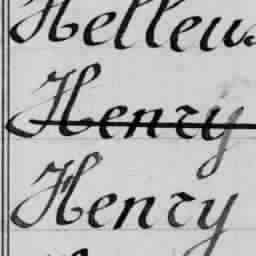 Helleu
Henry
Henry